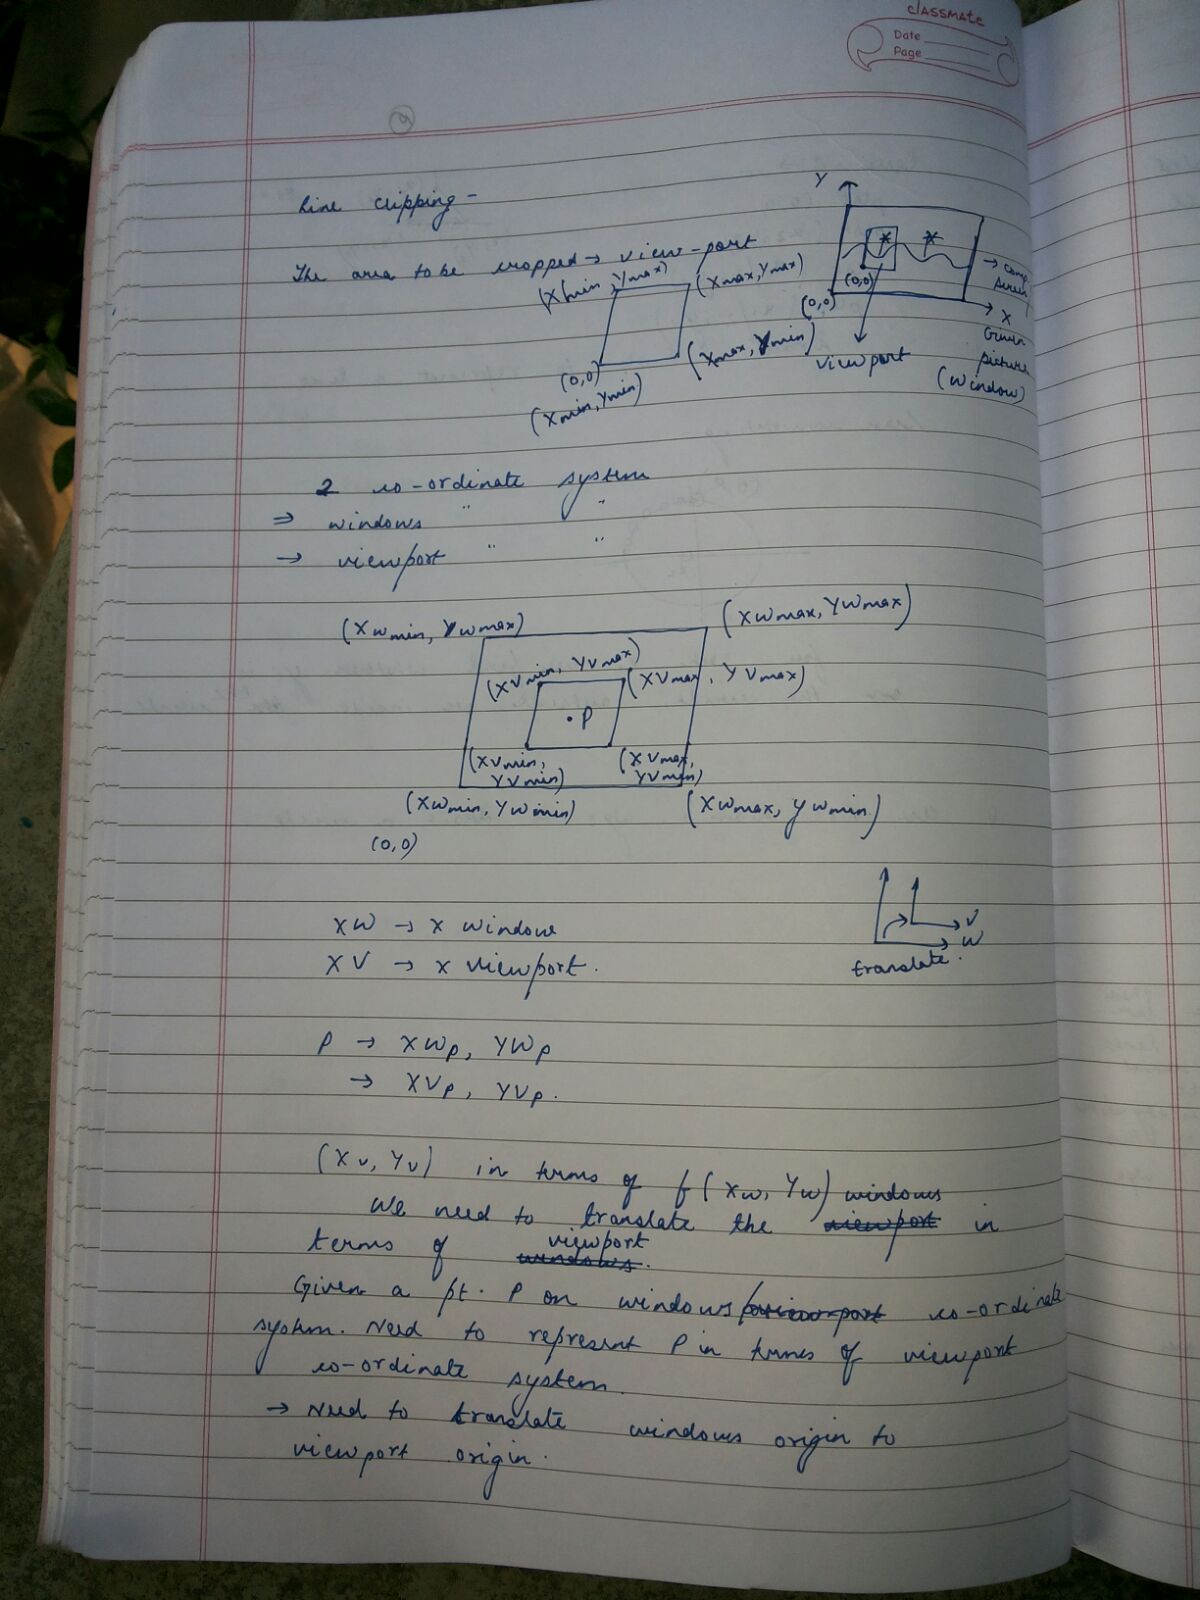 classmate
Date
Page
Line clipping -
The area to be cropped → view-port
(Xmin, Ymax) (Xmax, Ymax)
(Xmax, Ymin)
(0,0)
(Xmin, Ymin)
Y
(0,0)
(0,0)
X
→ comp
screen
viewport
Given
picture
(window)
2 co-ordinate system
⇒ windows " "
→ viewport " "
(Xwmin, Ywmax) (Xwmax, Ywmax)
(XVmin, YVmax) (XVmax, YVmax)
• P
(XVmin, YVmin) (XVmax, YVmin)
(Xwmin, Ywmin) (Xwmax, Ywmin)
(0,0)
XW → x window
XV → x viewport.
V
W
translate.
P → XWp, YWp
→ XVp, YVp.
(Xv, Yv) in terms of f(Xw, Yw) windows
We need to translate the viewport in
terms of windows. viewport
Given a pt. P on windows/view-port co-ordinate
system. Need to represent P in terms of viewport
co-ordinate system.
→ Need to translate windows origin to
viewport origin.